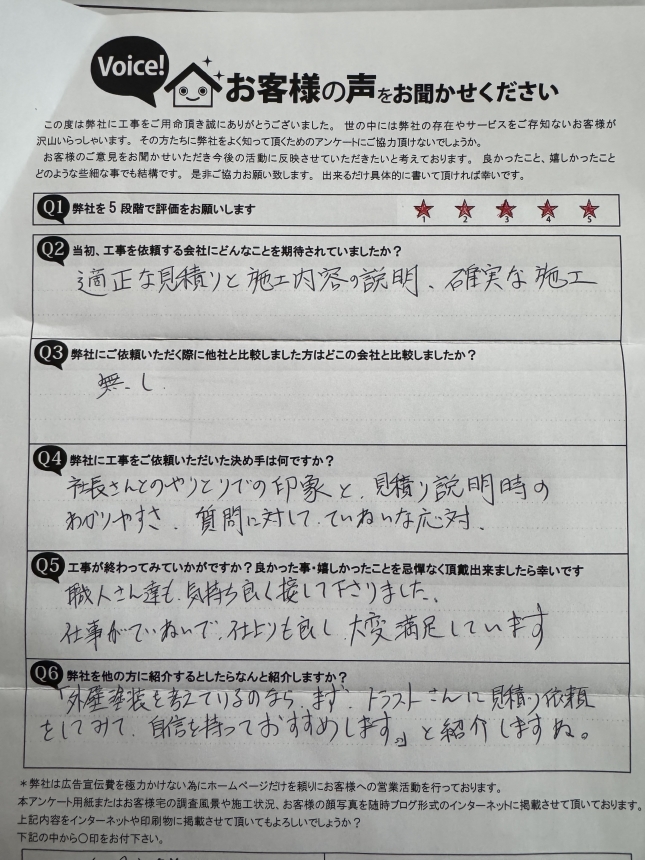 Voice!
お客様の声をお聞かせください
この度は弊社に工事をご用命頂き誠にありがとうございました。 世の中には弊社の存在やサービスをご存知ないお客様が
沢山いらっしゃいます。 その方たちに弊社をよく知って頂くためのアンケートにご協力頂けないでしょうか。
お客様のご意見をお聞かせいただき今後の活動に反映させていただきたいと考えております。 良かったこと、嬉しかったこと
どのような些細な事でも結構です。 是非ご協力お願い致します。 出来るだけ具体的に書いて頂ければ幸いです。
Q1 弊社を5段階で評価をお願いします
1 2 3 4 5
Q2 当初、工事を依頼する会社にどんなことを期待されていましたか？
適正な見積りと施工内容の説明、確実な施工
Q3 弊社にご依頼いただく際に他社と比較しました方はどこの会社と比較しましたか？
無し
Q4 弊社に工事をご依頼いただいた決め手は何ですか？
社長さんとのやりとりでの印象と、見積り説明時の
わかりやすさ、質問に対して、ていねいな応対、
Q5 工事が終わってみていかがですか？良かった事・嬉しかったことを忌憚なく頂戴出来ましたら幸いです
職人さん達も、気持ち良く接して下さりました。
仕事がていねいで、仕上りも良し、大変満足しています
Q6 弊社を他の方に紹介するとしたらなんと紹介しますか？
「外壁塗装を考えているのなら、まず、トラストさんに見積り依頼
をしてみて、自信を持っておすすめします。」と紹介しますね。
＊弊社は広告宣伝費を極力かけない為にホームページだけを頼りにお客様への営業活動を行っております。
本アンケート用紙またはお客様宅の調査風景や施工状況、お客様の顔写真を随時ブログ形式のインターネットに掲載させて頂いております。
上記内容をインターネットや印刷物に掲載させて頂いてもよろしいでしょうか？
下記の中から〇印をお付下さい。